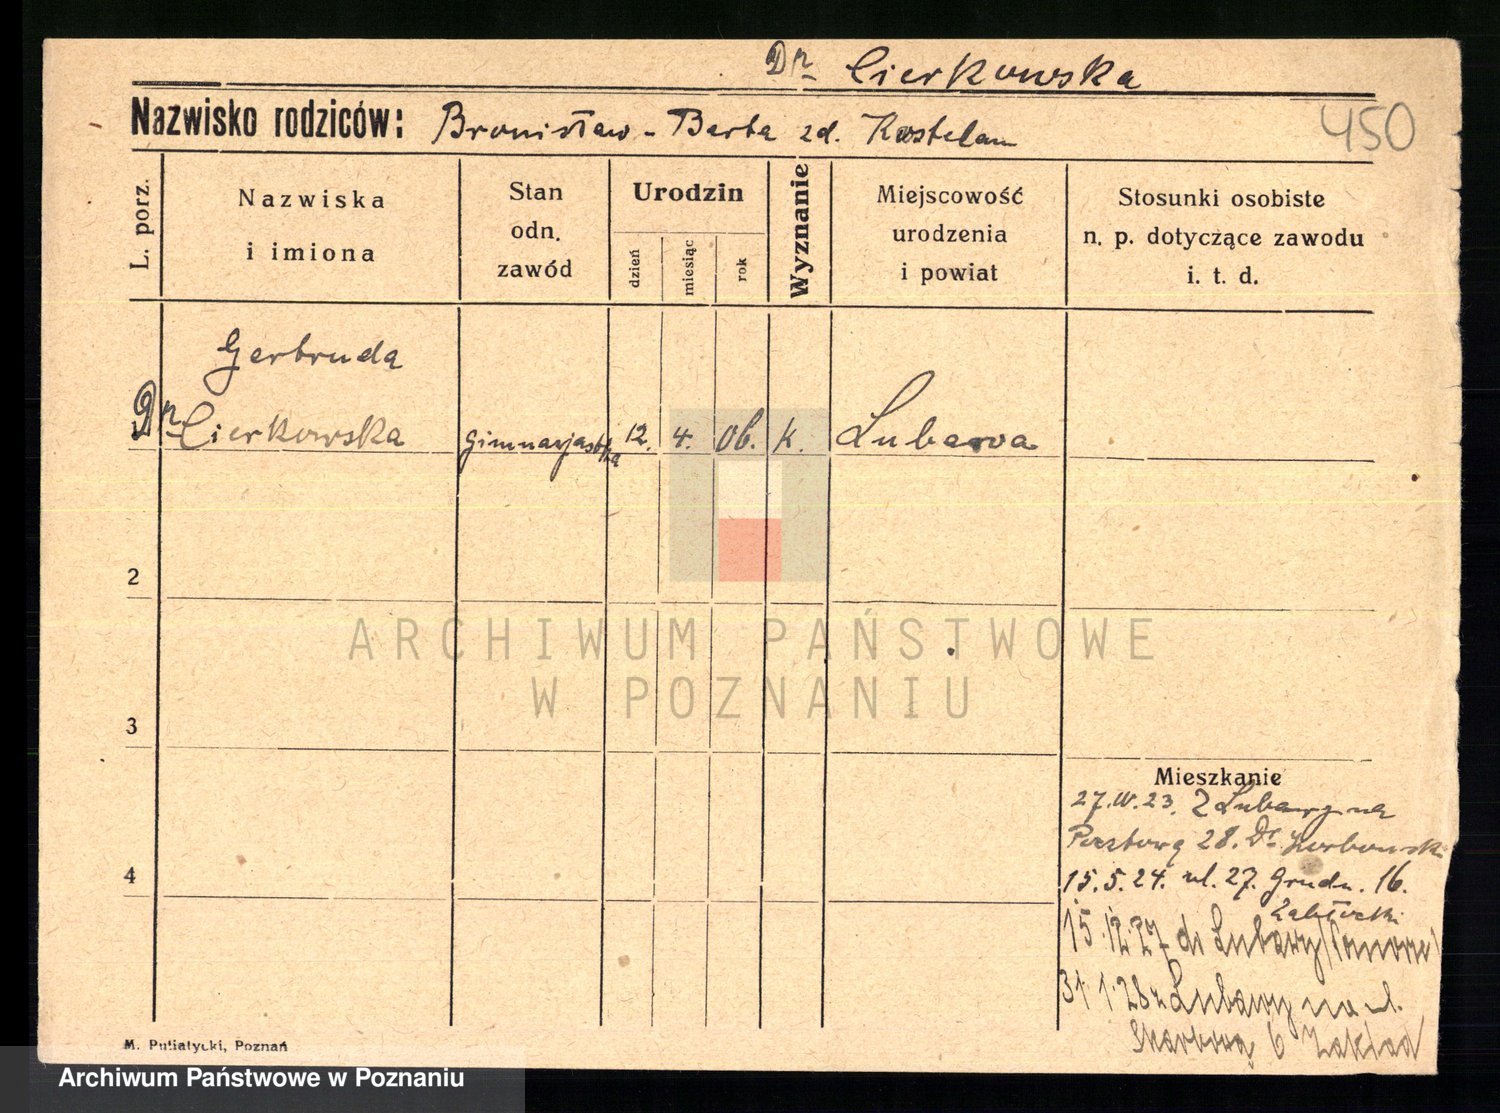 Dr Cierkowska
Nazwisko rodziców: Bronisław - Berta zd. Kastelan
450
L. porz.
Nazwiska
i imiona
Stan
odn.
zawód
Urodzin
dzień
miesiąc
rok
Wyznanie
Miejscowość
urodzenia
i powiat
Stosunki osobiste
n. p. dotyczące zawodu
i. t. d.
Gertruda
Dr Cierkowska
12. 4. 06. k. Lubawa
2
ARCHIWUM PAŃSTWOWE
W POZNANIU
3
Mieszkanie
27.IV.23. Z Lubawy na
Pocztową 28. Dr
4
15.5.24. ul. 27. Grudn. 16.
15.12.27 do Lubawy
31.1.28 z Lubawy na ul.
Skarbową 6 Zakład
M. Putiatycki, Poznań
Archiwum Państwowe w Poznaniu